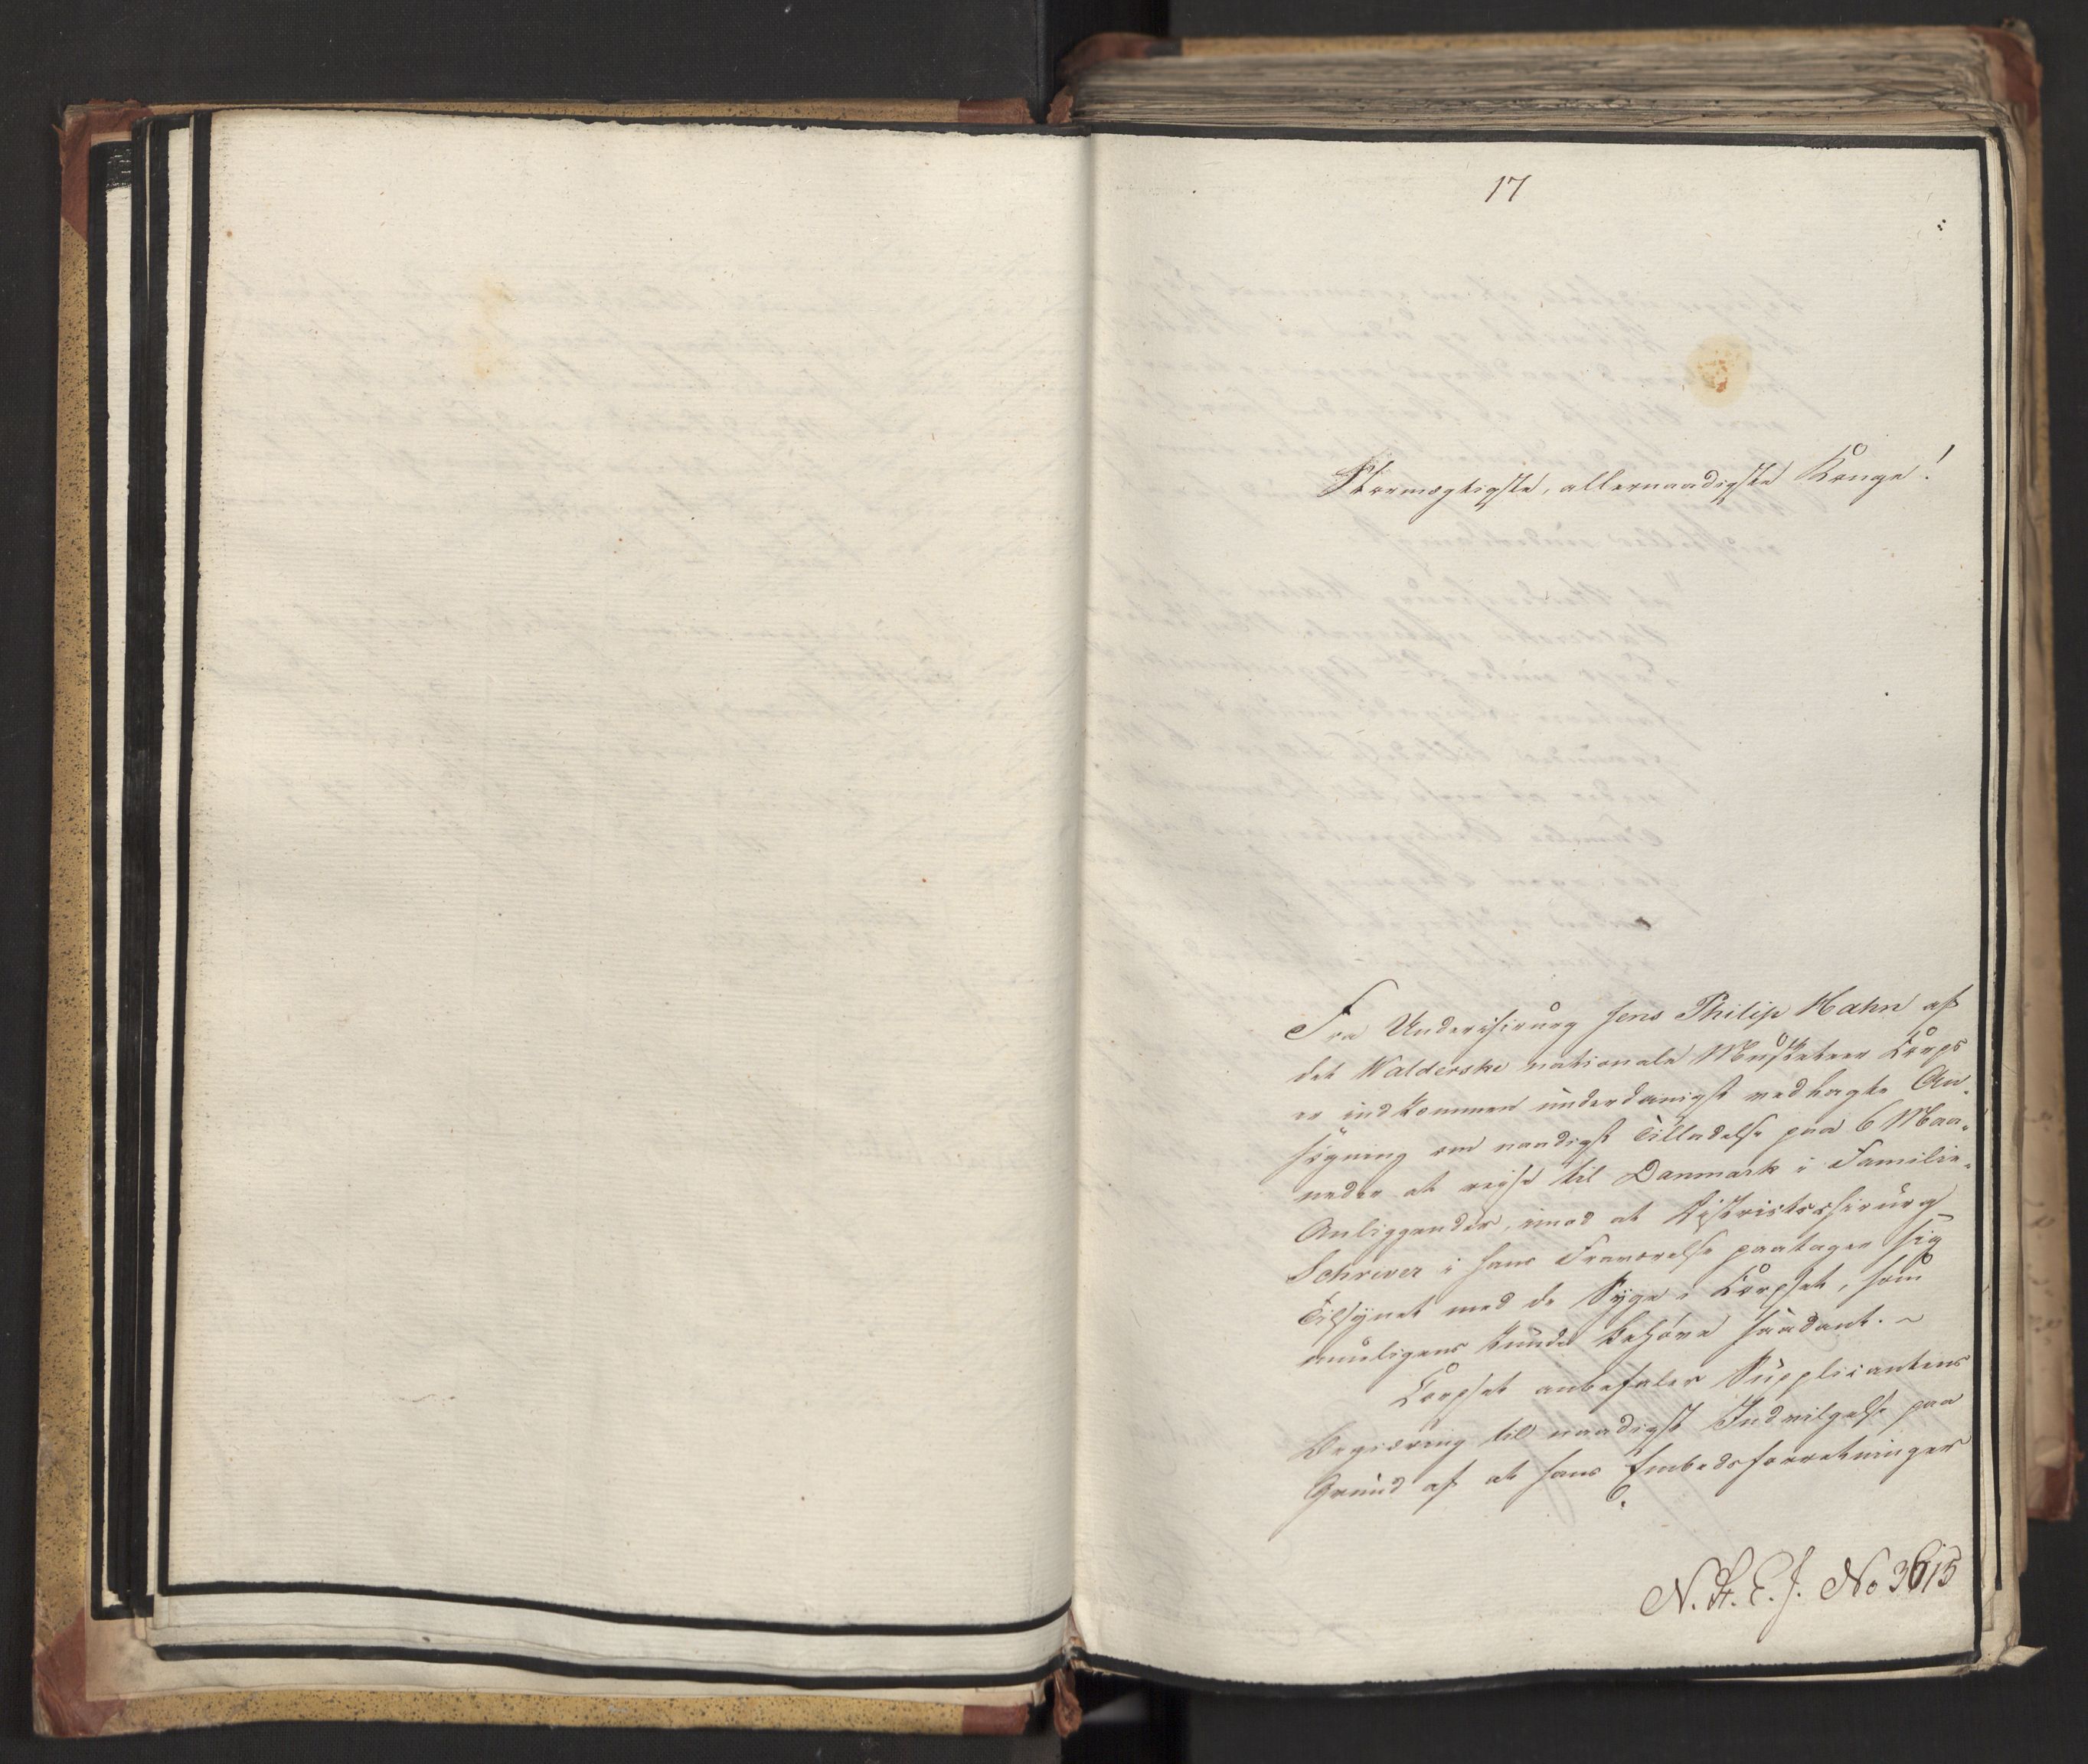 17
Stormægtigste, allernaadigste Konge!
Fra Underchirurg Jens Philip Hahn af
det Walderske nationale Musketeer Corps
er indkommen underdanigst vedlagte An-
søgning om naadigst Tilladelse paa 6 Maa-
neder at reise til Danmark i Familie-
Anliggender, imod at Districtschirurg
Schriver i hans Fraværelse paatager sig
Tilsynet med de Syge i Corpset, som
mueligens kunde behøve saadant.
Corpset anbefaler Supplicantens
Begiæring til naadigst Indvilgelse paa
Grund af at hans Embedsforretninger
N. A. E. J. No 3615